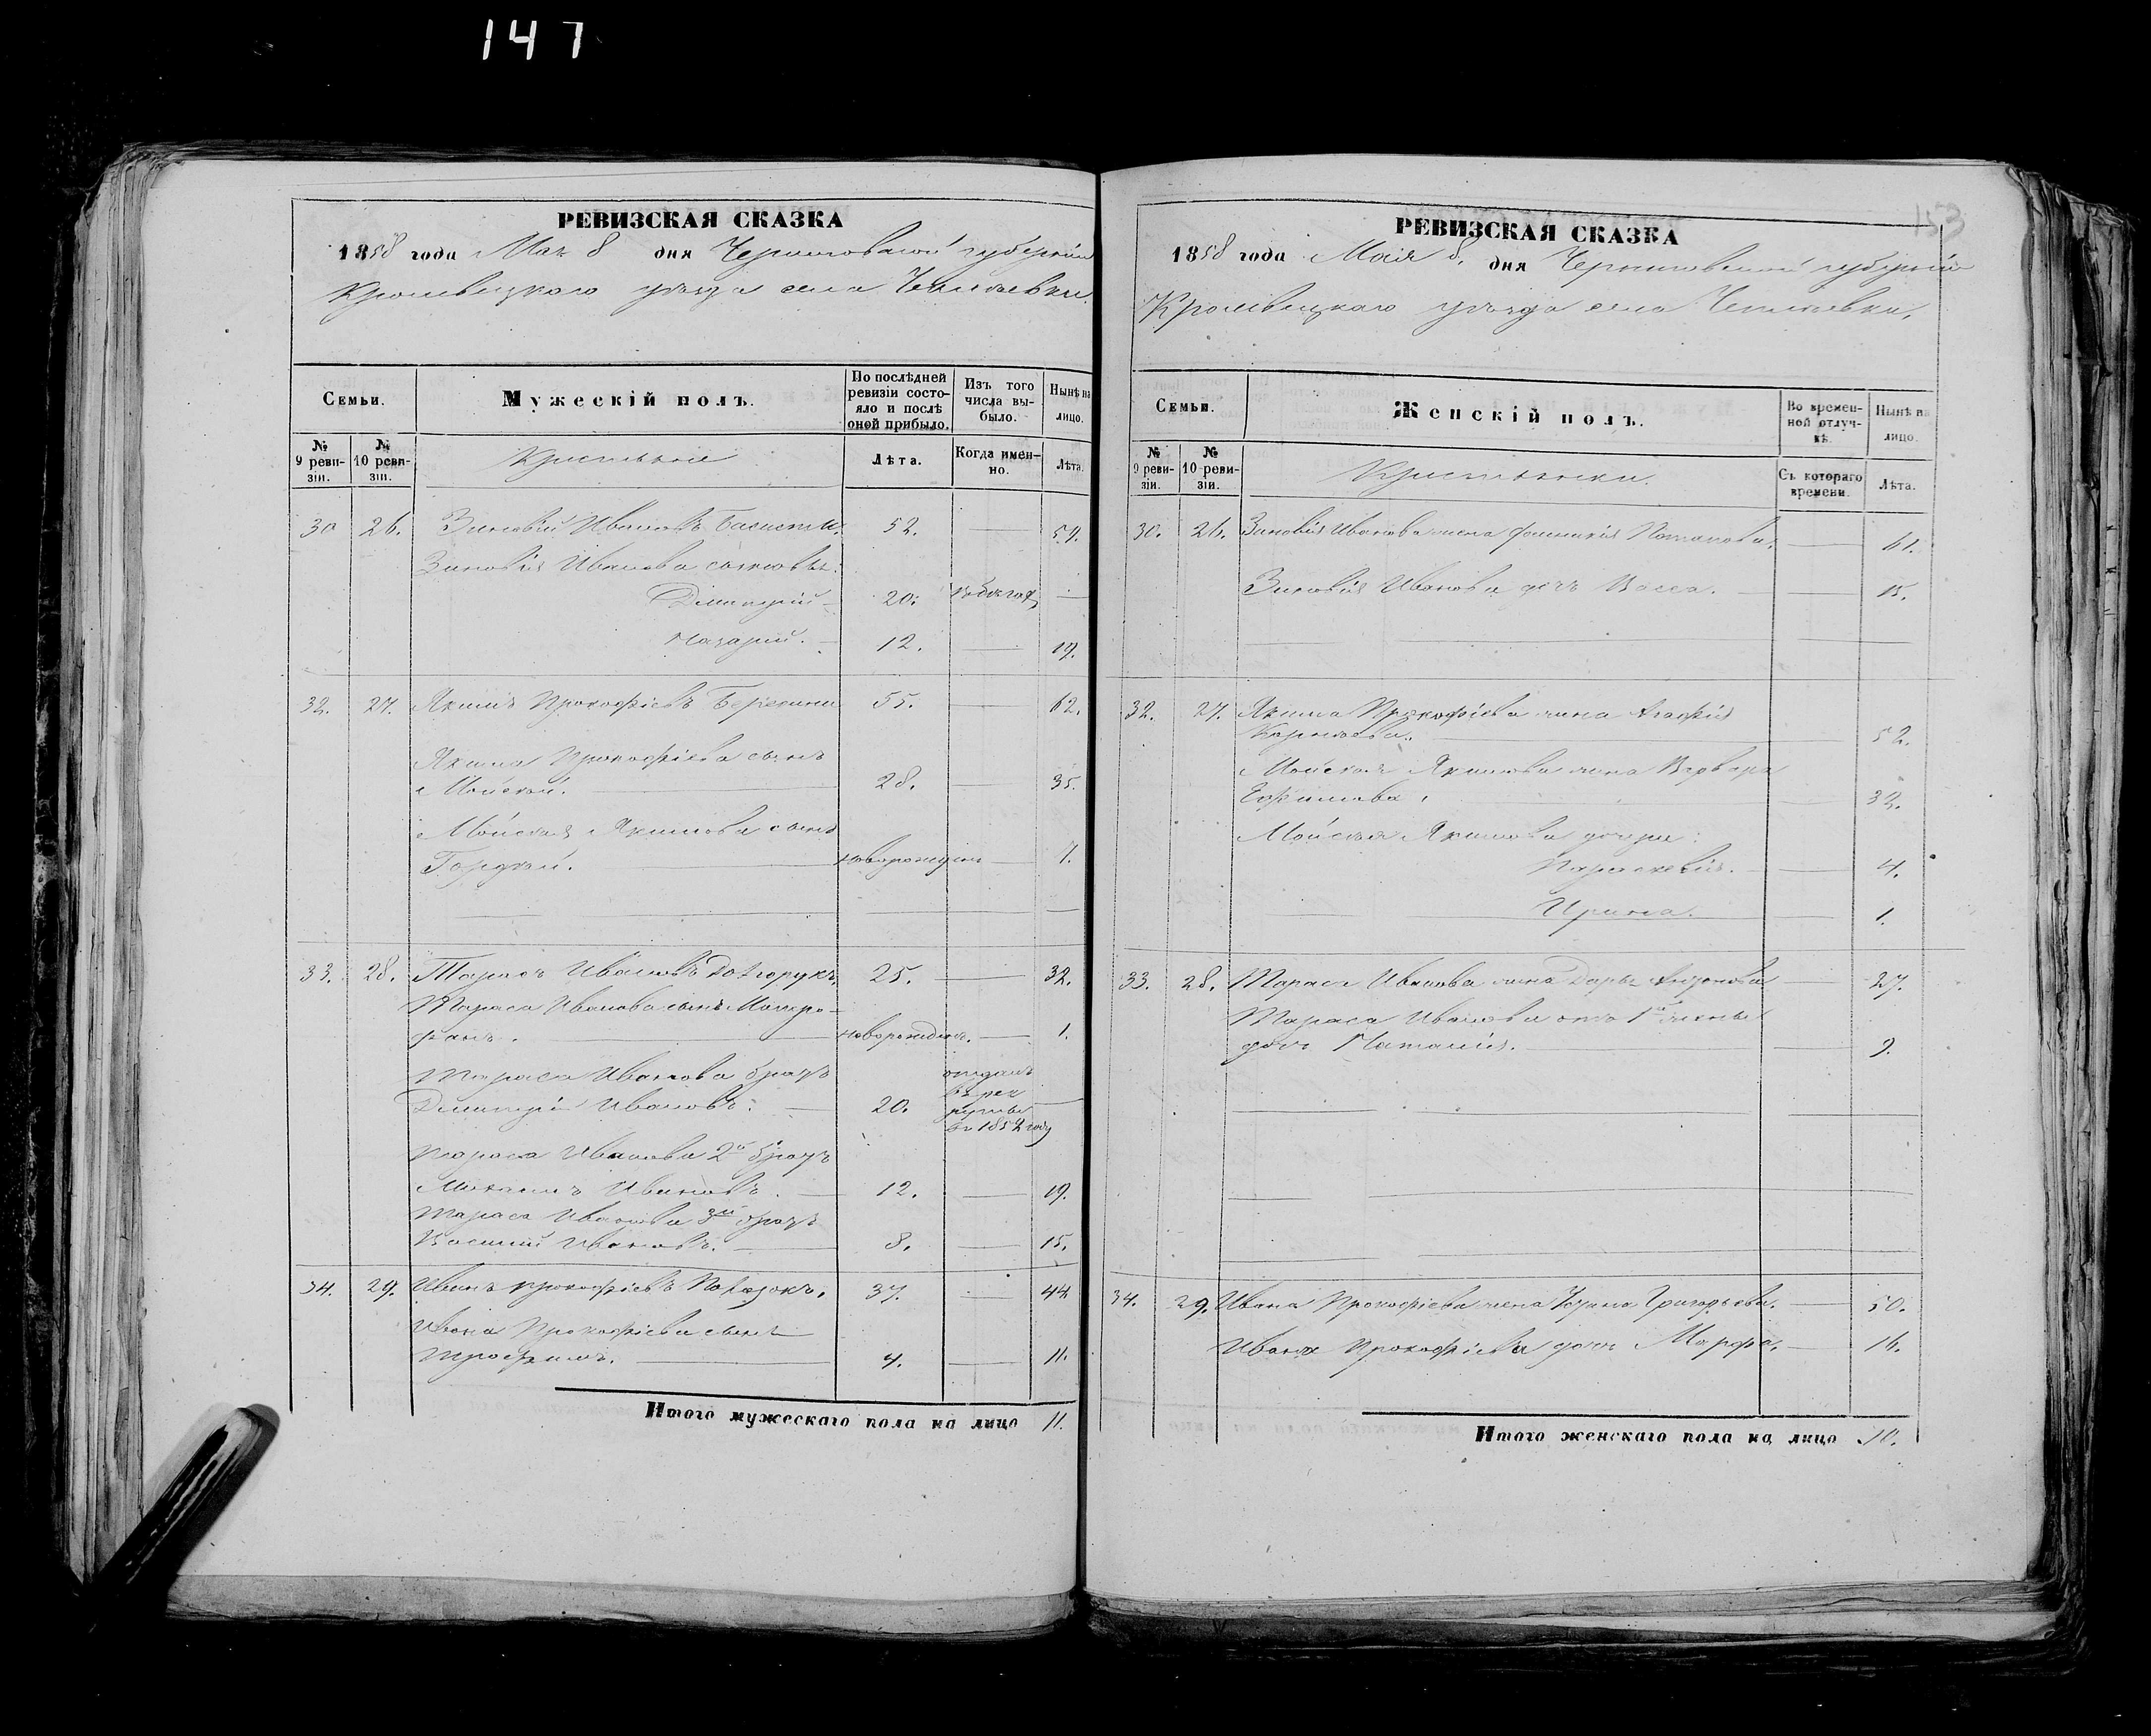 147
РЕВИЗСКАЯ СКАЗКА
1858 года Мая 8 дня Черниговской губерніи
Кролевецкаго уѣзда села
Семьи.
Мужескій полъ.
По послѣдней ревизіи состояло и послѣ оной прибыло.
Изъ того числа выбыло.
Нынѣ на лицо.
№ 9 ревизіи.
№ 10 ревизіи.
Крестьяне
Лѣта.
Когда именно.
Лѣта.
30 26. Зиновій Ивановъ 52. 59.
Зиновія Иванова сыновья:
Димитрій 20.
Назарій. 12. 19.
32. 27. Якимъ Прокофіевъ 55. 62.
Якима Прокофіева сынъ
Мойсей. 28. 35.
Мойсея Якимова сынъ
Гордѣй. новорожден 7.
33. 28. Тарасъ Ивановъ Долгорукъ 25. 32.
Тараса Иванова сынъ Митро-
фанъ. новорожден. 1.
Тараса Иванова братъ
Димитрій Ивановъ. 20. отданъ въ рекруты въ 1852 году
Тараса Иванова 2й братъ
Михаилъ Ивановъ. 12. 19.
Тараса Иванова 3й братъ
Василій Ивановъ. 8. 15.
34. 29. Иванъ Прокофіевъ 37. 44
Ивана Прокофіева сынъ
Трофимъ. 4. 11.
Итого мужескаго пола на лицо 11.
153
РЕВИЗСКАЯ СКАЗКА
1858 года Мая 8. дня Черниговской губерніи
Кролевецкаго уѣзда села
Семьи.
Женскій полъ.
Во временной отлучкѣ.
Нынѣ на лицо.
№ 9 ревизіи.
№ 10 ревизіи.
Крестьянки.
Съ котораго времени.
Лѣта.
30. 26. Зиновія Иванова жена Потапова. 61.
Зиновія Иванова дочь Васса. 15.
32. 27. Якима Прокофіева жена Агафія
52.
Мойсея Якимова жена Варвара
Ефимова. 32.
Мойсея Якимова дочери:
Параскевія. 4.
Ирина. 1.
33. 28. Тараса Иванова жена Дарья 27.
Тараса Иванова отъ 1й жены
дочь Наталія. 9.
34. 29. Ивана Прокофіева жена Григорьева. 50.
Ивана Прокофіева дочь Марфа. 16.
Итого женскаго пола на лицо 10.